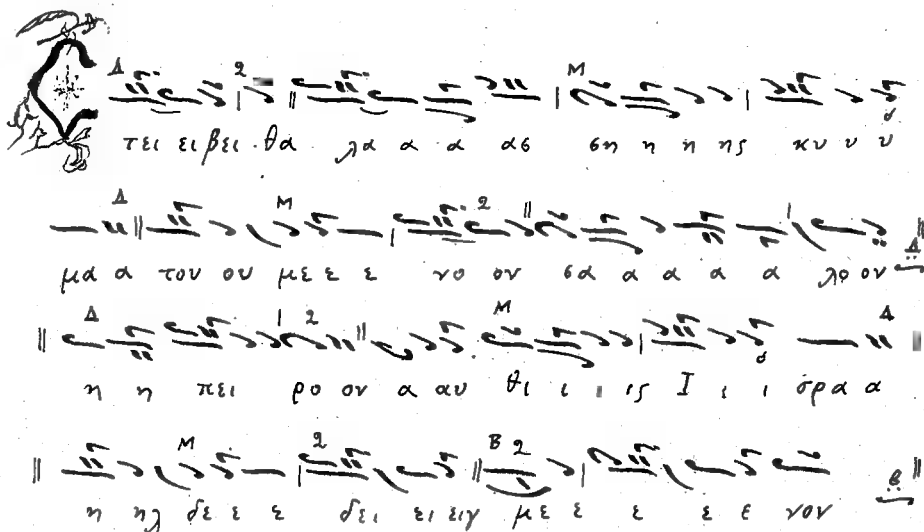 τει ει βει θα λα α α ας ση η η ης κυ υ υ
μα α του ου με ε ε νο ον σα α α α α λο ον
η η πει ρο ον α αυ θι ι ι ις Ι ι ι σρα α
η ηλ δε ε ε δει ει ειγ με ε ε ε ε νον